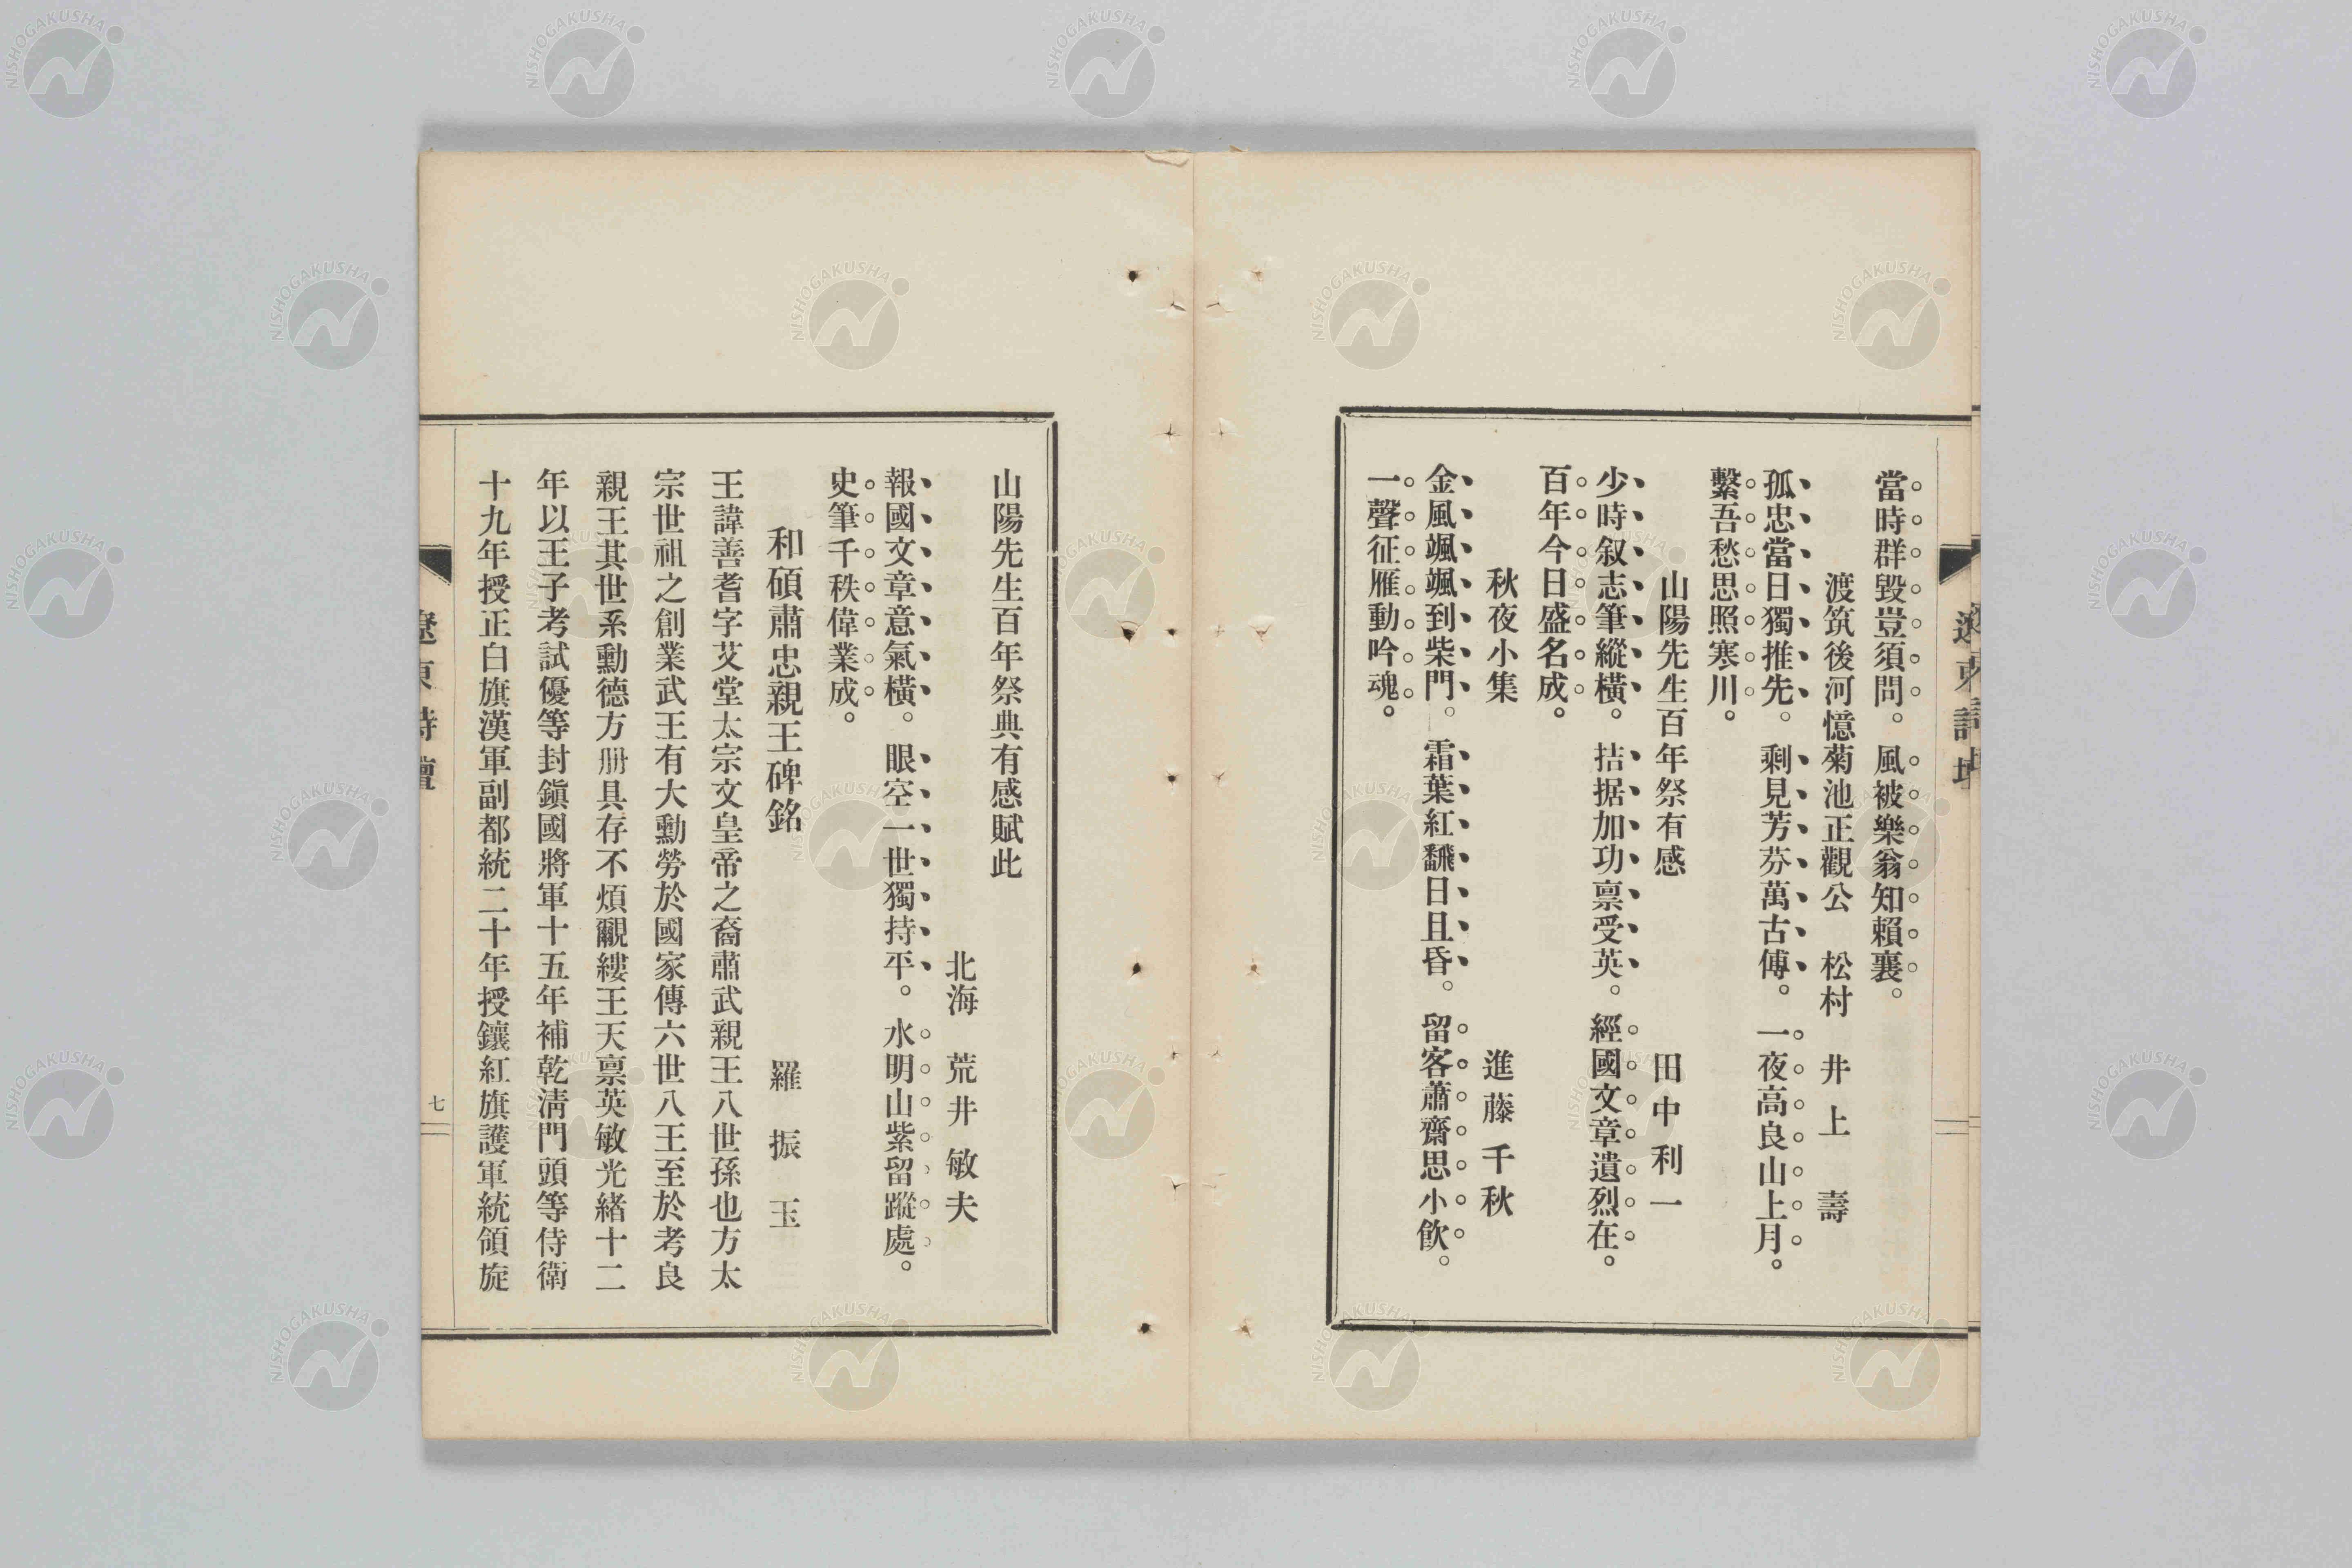 當時群毀豈須問。風被樂翁知賴襄。
渡筑後河憶菊池正觀公　松村　井上　壽
孤忠當日獨推先。剩見芳芬萬古傳。一夜高良山上月。
繫吾愁思照寒川。
山陽先生百年祭有感　田中利一
少時叙志筆縱橫。拮据加功禀受英。經國文章遺烈在。
百年今日盛名成。
秋夜小集　進藤千秋
金風颯颯到柴門。霜葉紅飜日且昏。留客蕭齋思小飮。
一聲征雁動吟魂。
山陽先生百年祭典有感賦此
北海　荒井敏夫
報國文章意氣橫。眼空一世獨持平。水明山紫留蹤處。
史筆千秩偉業成。
和碩肅忠親王碑銘
羅振玉
王諱善耆字艾堂太宗文皇帝之裔肅武親王八世孫也方太
宗世祖之創業武王有大勳勞於國家傳六世八王至於考良
親王其世系勳德方册具存不煩覼縷王天禀英敏光緒十二
年以王子考試優等封鎭國將軍十五年補乾淸門頭等侍衛
十九年授正白旗漢軍副都統二十年授鑲紅旗護軍統領旋
遼東詩壇
七
NISHOGAKUSHA